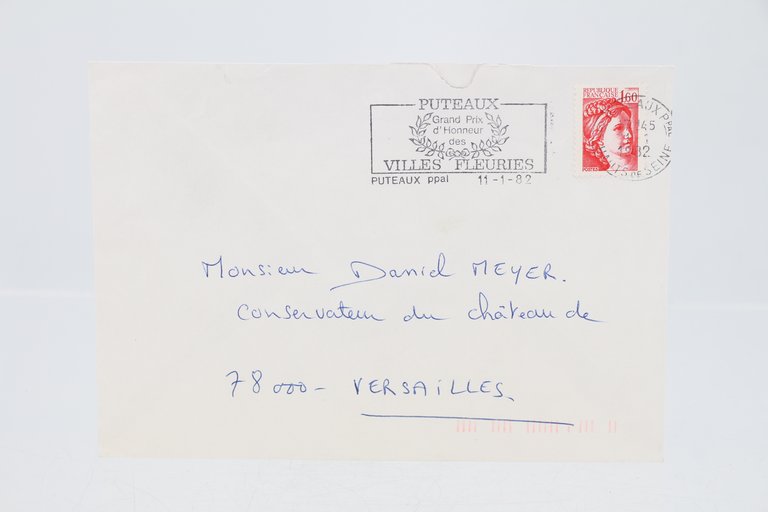 PUTEAUX
Grand Prix
d'Honneur
des
VILLES FLEURIES
PUTEAUX ppal 11-1-82
REPUBLIQUE
FRANÇAISE
1,60
Monsieur Daniel MEYER.
Conservateur du château de
78000- VERSAILLES.